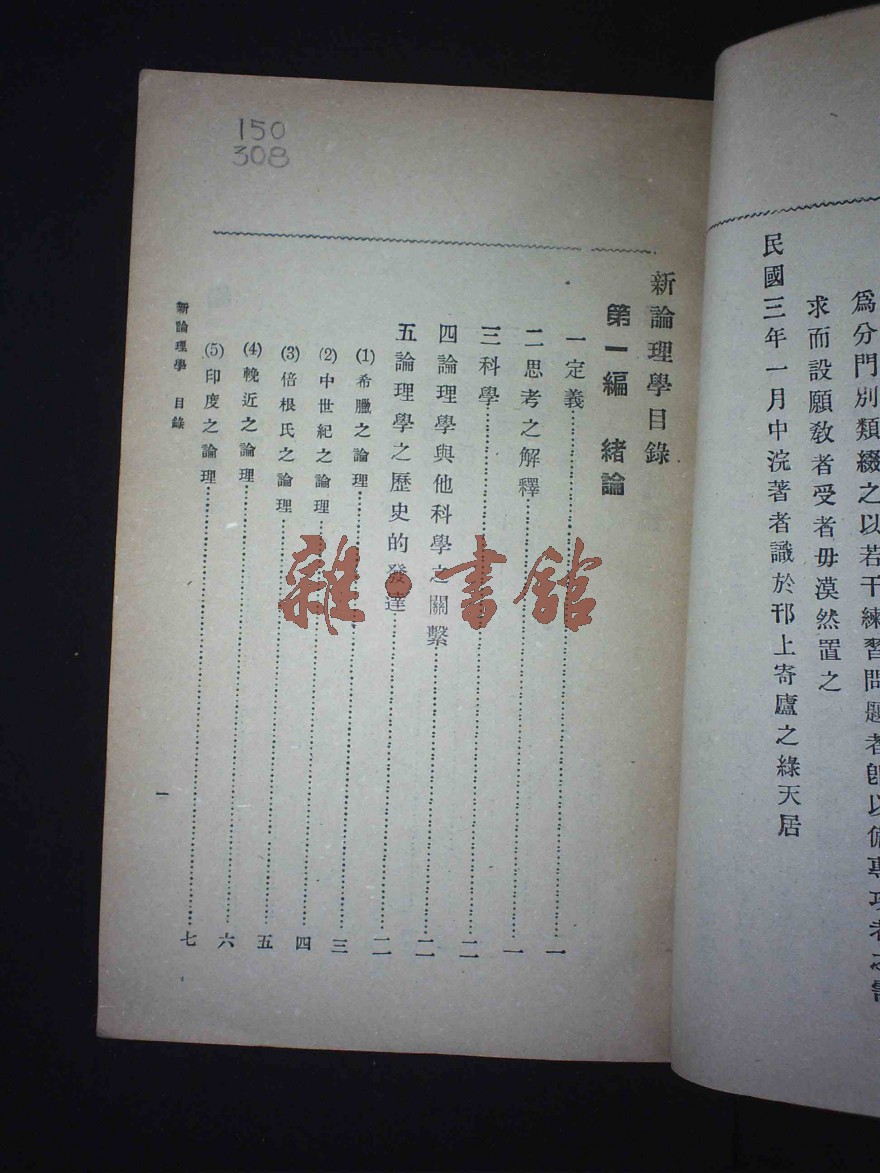 爲分門別類綴之以若干練習問題者卽以備專攻者之需
求而設願敎者受者毋漠然置之
民國三年一月中浣著者識於邗上寄廬之綠天居
150
308
新論理學目錄
第一編 緒論
一定義……一
二思考之解釋……一
三科學……二
四論理學與他科學之關繫……二
五論理學之歷史的發達……二
(1)希臘之論理……三
(2)中世紀之論理……四
(3)倍根氏之論理……五
(4)輓近之論理……六
(5)印度之論理……七
新論理學 目錄
一
雜·書館